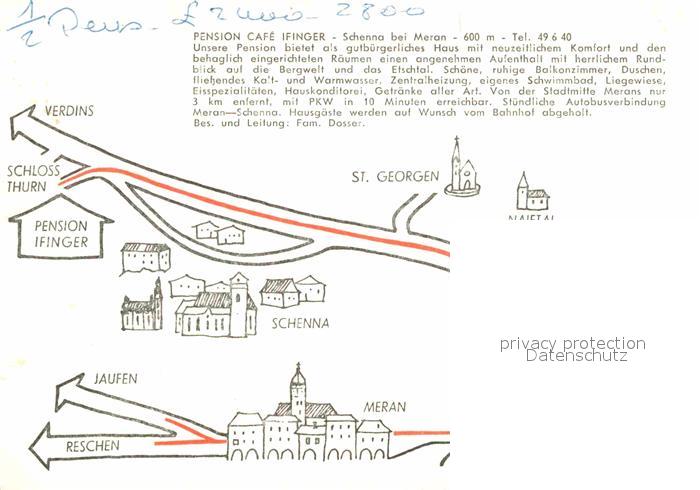 1/2 Pens. £ 2800
PENSION CAFÉ IFINGER - Schenna bei Meran - 600 m - Tel. 49 6 40
Unsere Pension bietet als gutbürgerliches Haus mit neuzeitlichem Komfort und den
behaglich eingerichteten Räumen einen angenehmen Aufenthalt mit herrlichem Rund-
blick auf die Bergwelt und das Etschtal. Schöne, ruhige Balkonzimmer, Duschen,
fließendes Kalt- und Warmwasser, Zentralheizung, eigenes Schwimmbad, Liegewiese,
Eisspezialitäten, Hauskonditorei, Getränke aller Art. Von der Stadtmitte Merans nur
3 km enfernt, mit PKW in 10 Minuten erreichbar. Stündliche Autobusverbindung
Meran—Schenna. Hausgäste werden auf Wunsch vom Bahnhof abgeholt.
Bes. und Leitung: Fam. Dosser.
VERDINS
SCHLOSS
THURN
ST. GEORGEN
PENSION
IFINGER
SCHENNA
privacy protection
Datenschutz
JAUFEN
MERAN
RESCHEN